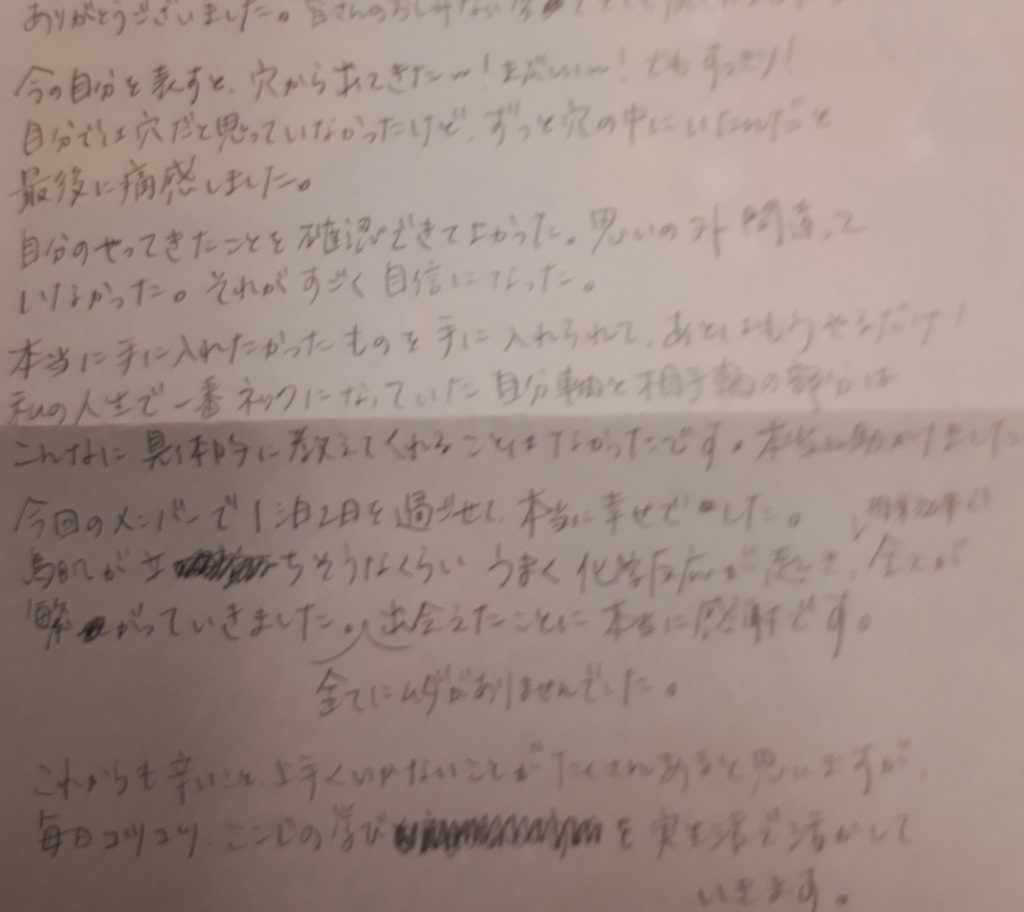 ありがとうございました。皆さんのおしみない
今の自分を表すと、穴から出てきた〜!まぶしい〜!でもすっきり!
自分では穴だと思っていなかったけど、ずっと穴の中にいたんだと
最後に痛感しました。
自分のやってきたことを確認できてよかった。思いの外間違って
いなかった。それがすごく自信になった。
本当に手に入れたかったものを手に入れられて、あとはもうやるだけ!
私の人生で一番ネックになっていた自分軸と相手軸の部分は
こんなに具体的に教えてくれることはなかったです。本当に助かりました
今回のメンバーで1泊2日を過ごせて本当に幸せでした。
相乗効果で
鳥肌が立ちそうなくらいうまく化学反応が起きて、全てが
繋がっていきました。出会えたことに本当に感謝です。
全てにムダがありませんでした。
これからも辛いこと、上手くいかないことがたくさんあると思いますが、
毎日コツコツ、ここでの学びを実生活で活かして
いきます。